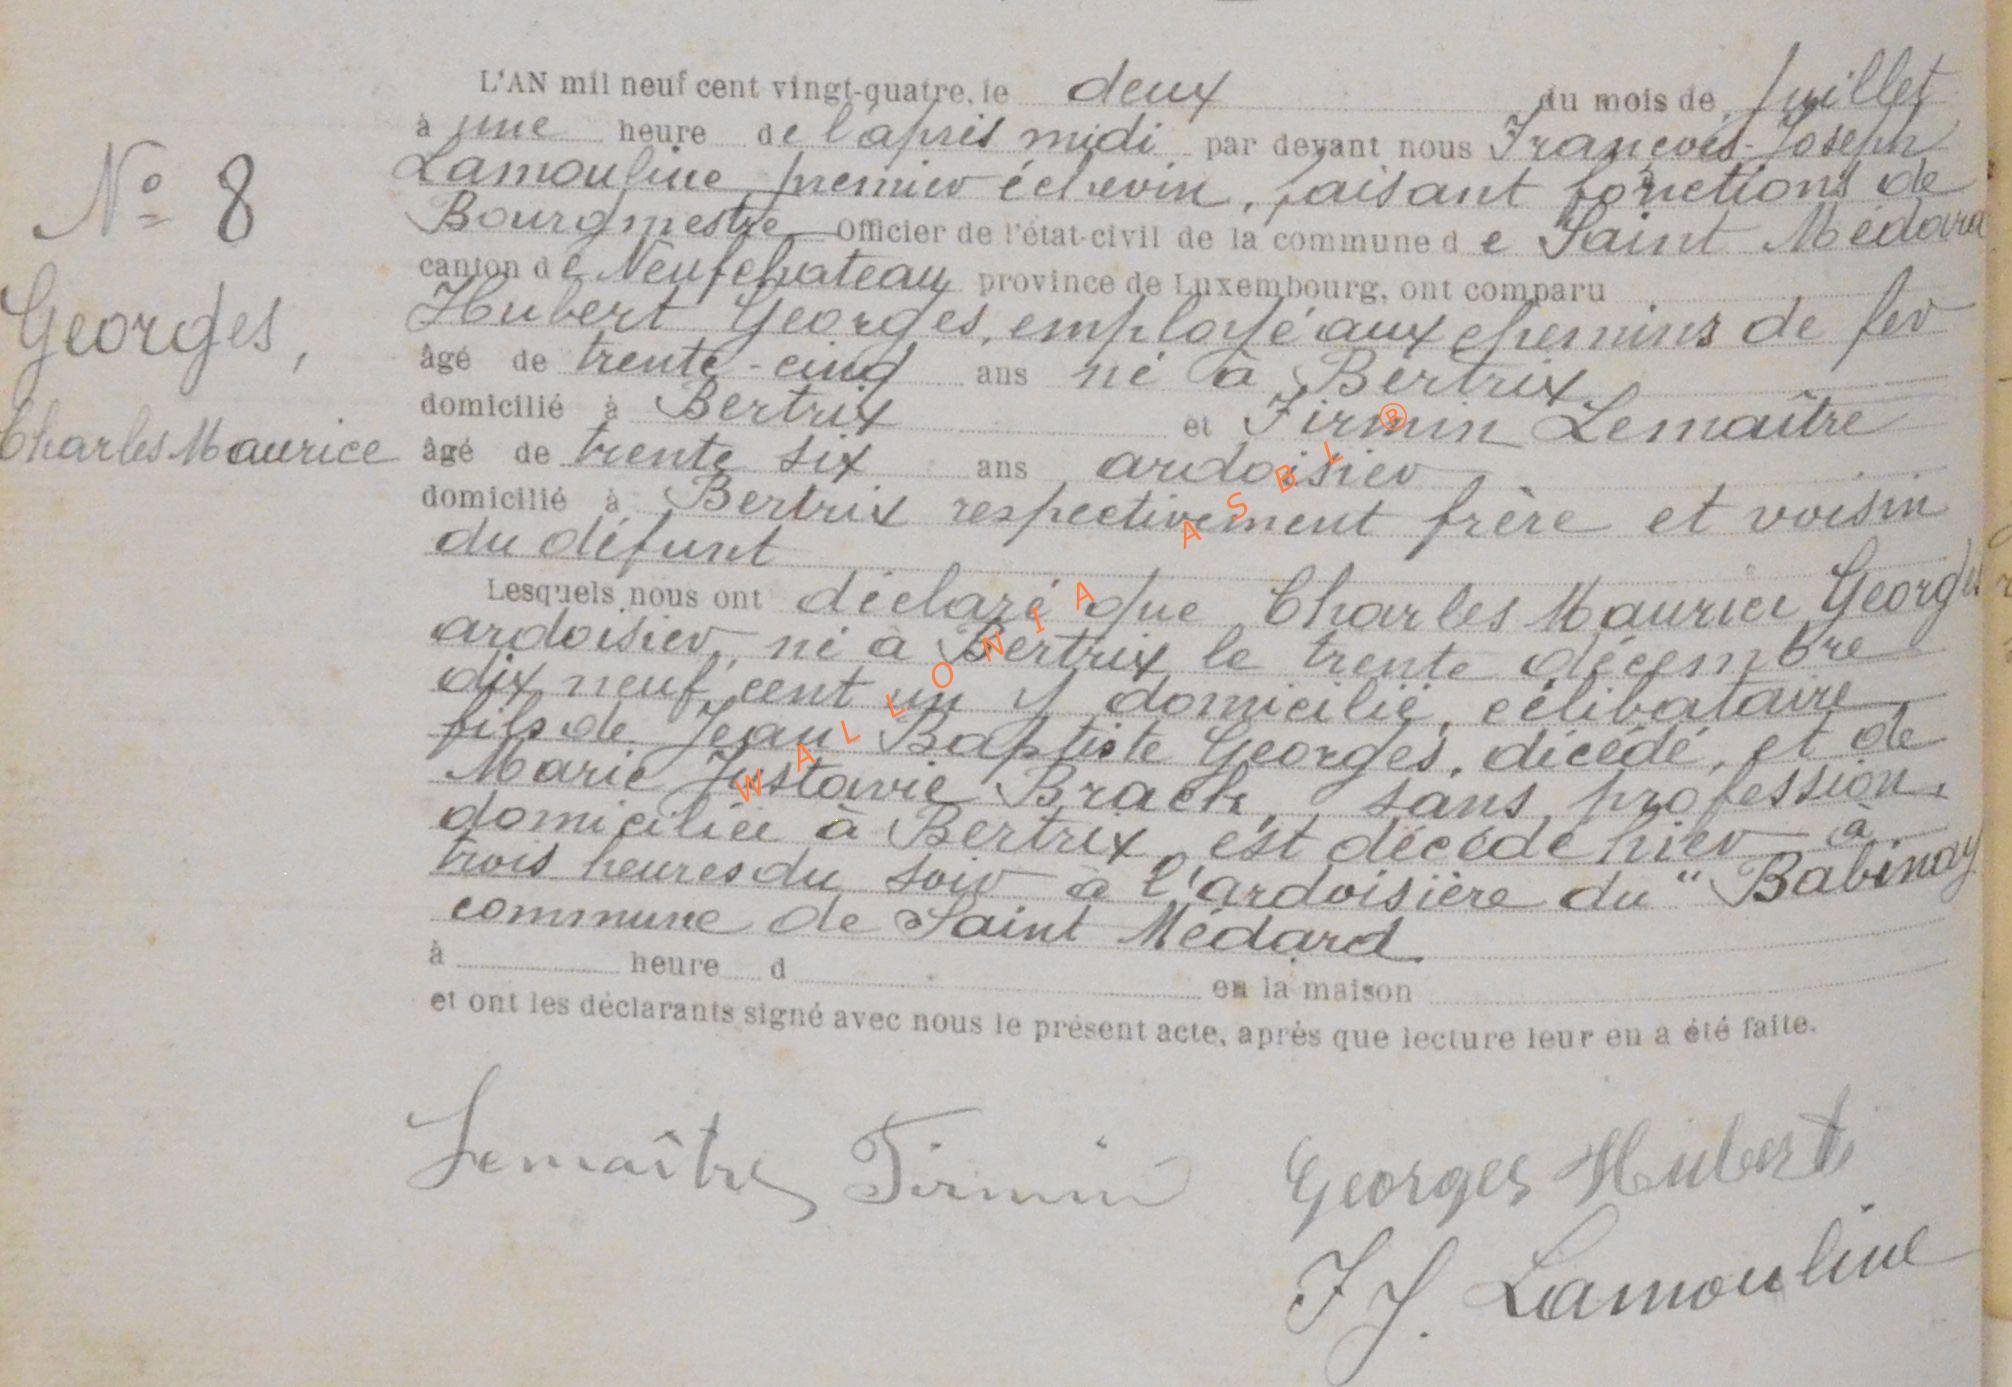 N° 8
Georges,
Charles Maurice
L'AN mil neuf cent vingt-quatre, le deux du mois de Juillet
à une heure de l'après midi par devant nous François-Joseph
Lamouline, premier échevin, faisant fonctions de
Bourgmestre Officier de l'état-civil de la commune de Saint Médard
canton de Neufchateau province de Luxembourg, ont comparu
Hubert Georges, employé aux chemins de fer
âgé de trente-cinq ans né à Bertrix
domicilié à Bertrix et Firmin Lemaître
âgé de trente six ans ardoisier
domicilié à Bertrix respectivement frère et voisin
du défunt
Lesquels nous ont déclaré que Charles Maurice Georges
ardoisier, né à Bertrix le trente décembre
dix neuf cent un y domicilié, célibataire,
fils de Jean Baptiste Georges, décédé, et de
Marie Justavie Brack, sans profession,
domiciliée à Bertrix, est décédé hier à
trois heures du soir à l'ardoisière du "Babinay
commune de Saint Médard
à heure d en la maison
et ont les déclarants signé avec nous le présent acte, après que lecture leur en a été faite.
Lemaître Firmin Georges Hubert
F J. Lamouline
WALLONIA ASBL ®